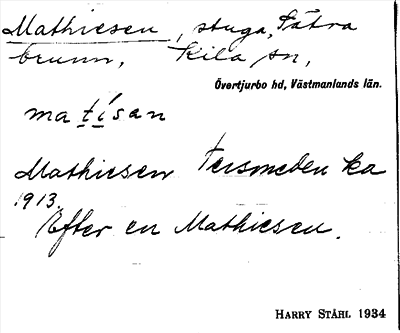 Mathiesen, stuga, Sätra
brunn, Kila sn,
Övertjurbo hd, Västmanlands län.
matísan
Mathiesen Tersmeden ka
1913.
Efter en Mathiesen.
HARRY STÅHL 1934